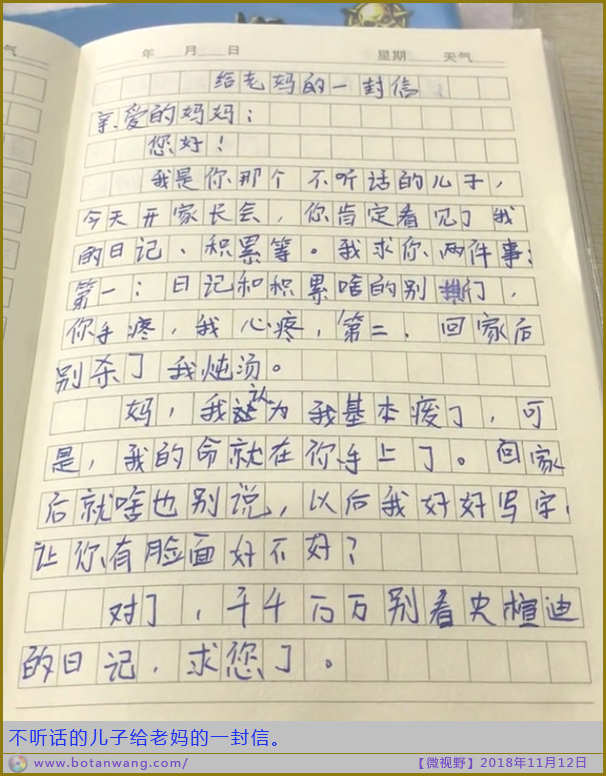 气
年 月 日 星期 天气
给老妈的一封信
亲爱的妈妈：
您好！
我是你那个不听话的儿子，
今天开家长会，你肯定看见了我
的日记、积累等。我求你两件事：
第一：日记和积累啥的别撕，
你手疼，我心疼，第二，回家后
别杀了我炖汤。
妈，我认为我基本废了，可
是，我的命就在你手上了。回家
后就啥也别说，以后我好好写字，
让你有脸面好不好？
对了，千千万万别看史楦迪
的日记，求您了。
不听话的儿子给老妈的一封信。
www.botanwang.com/
【微视野】2018年11月12日